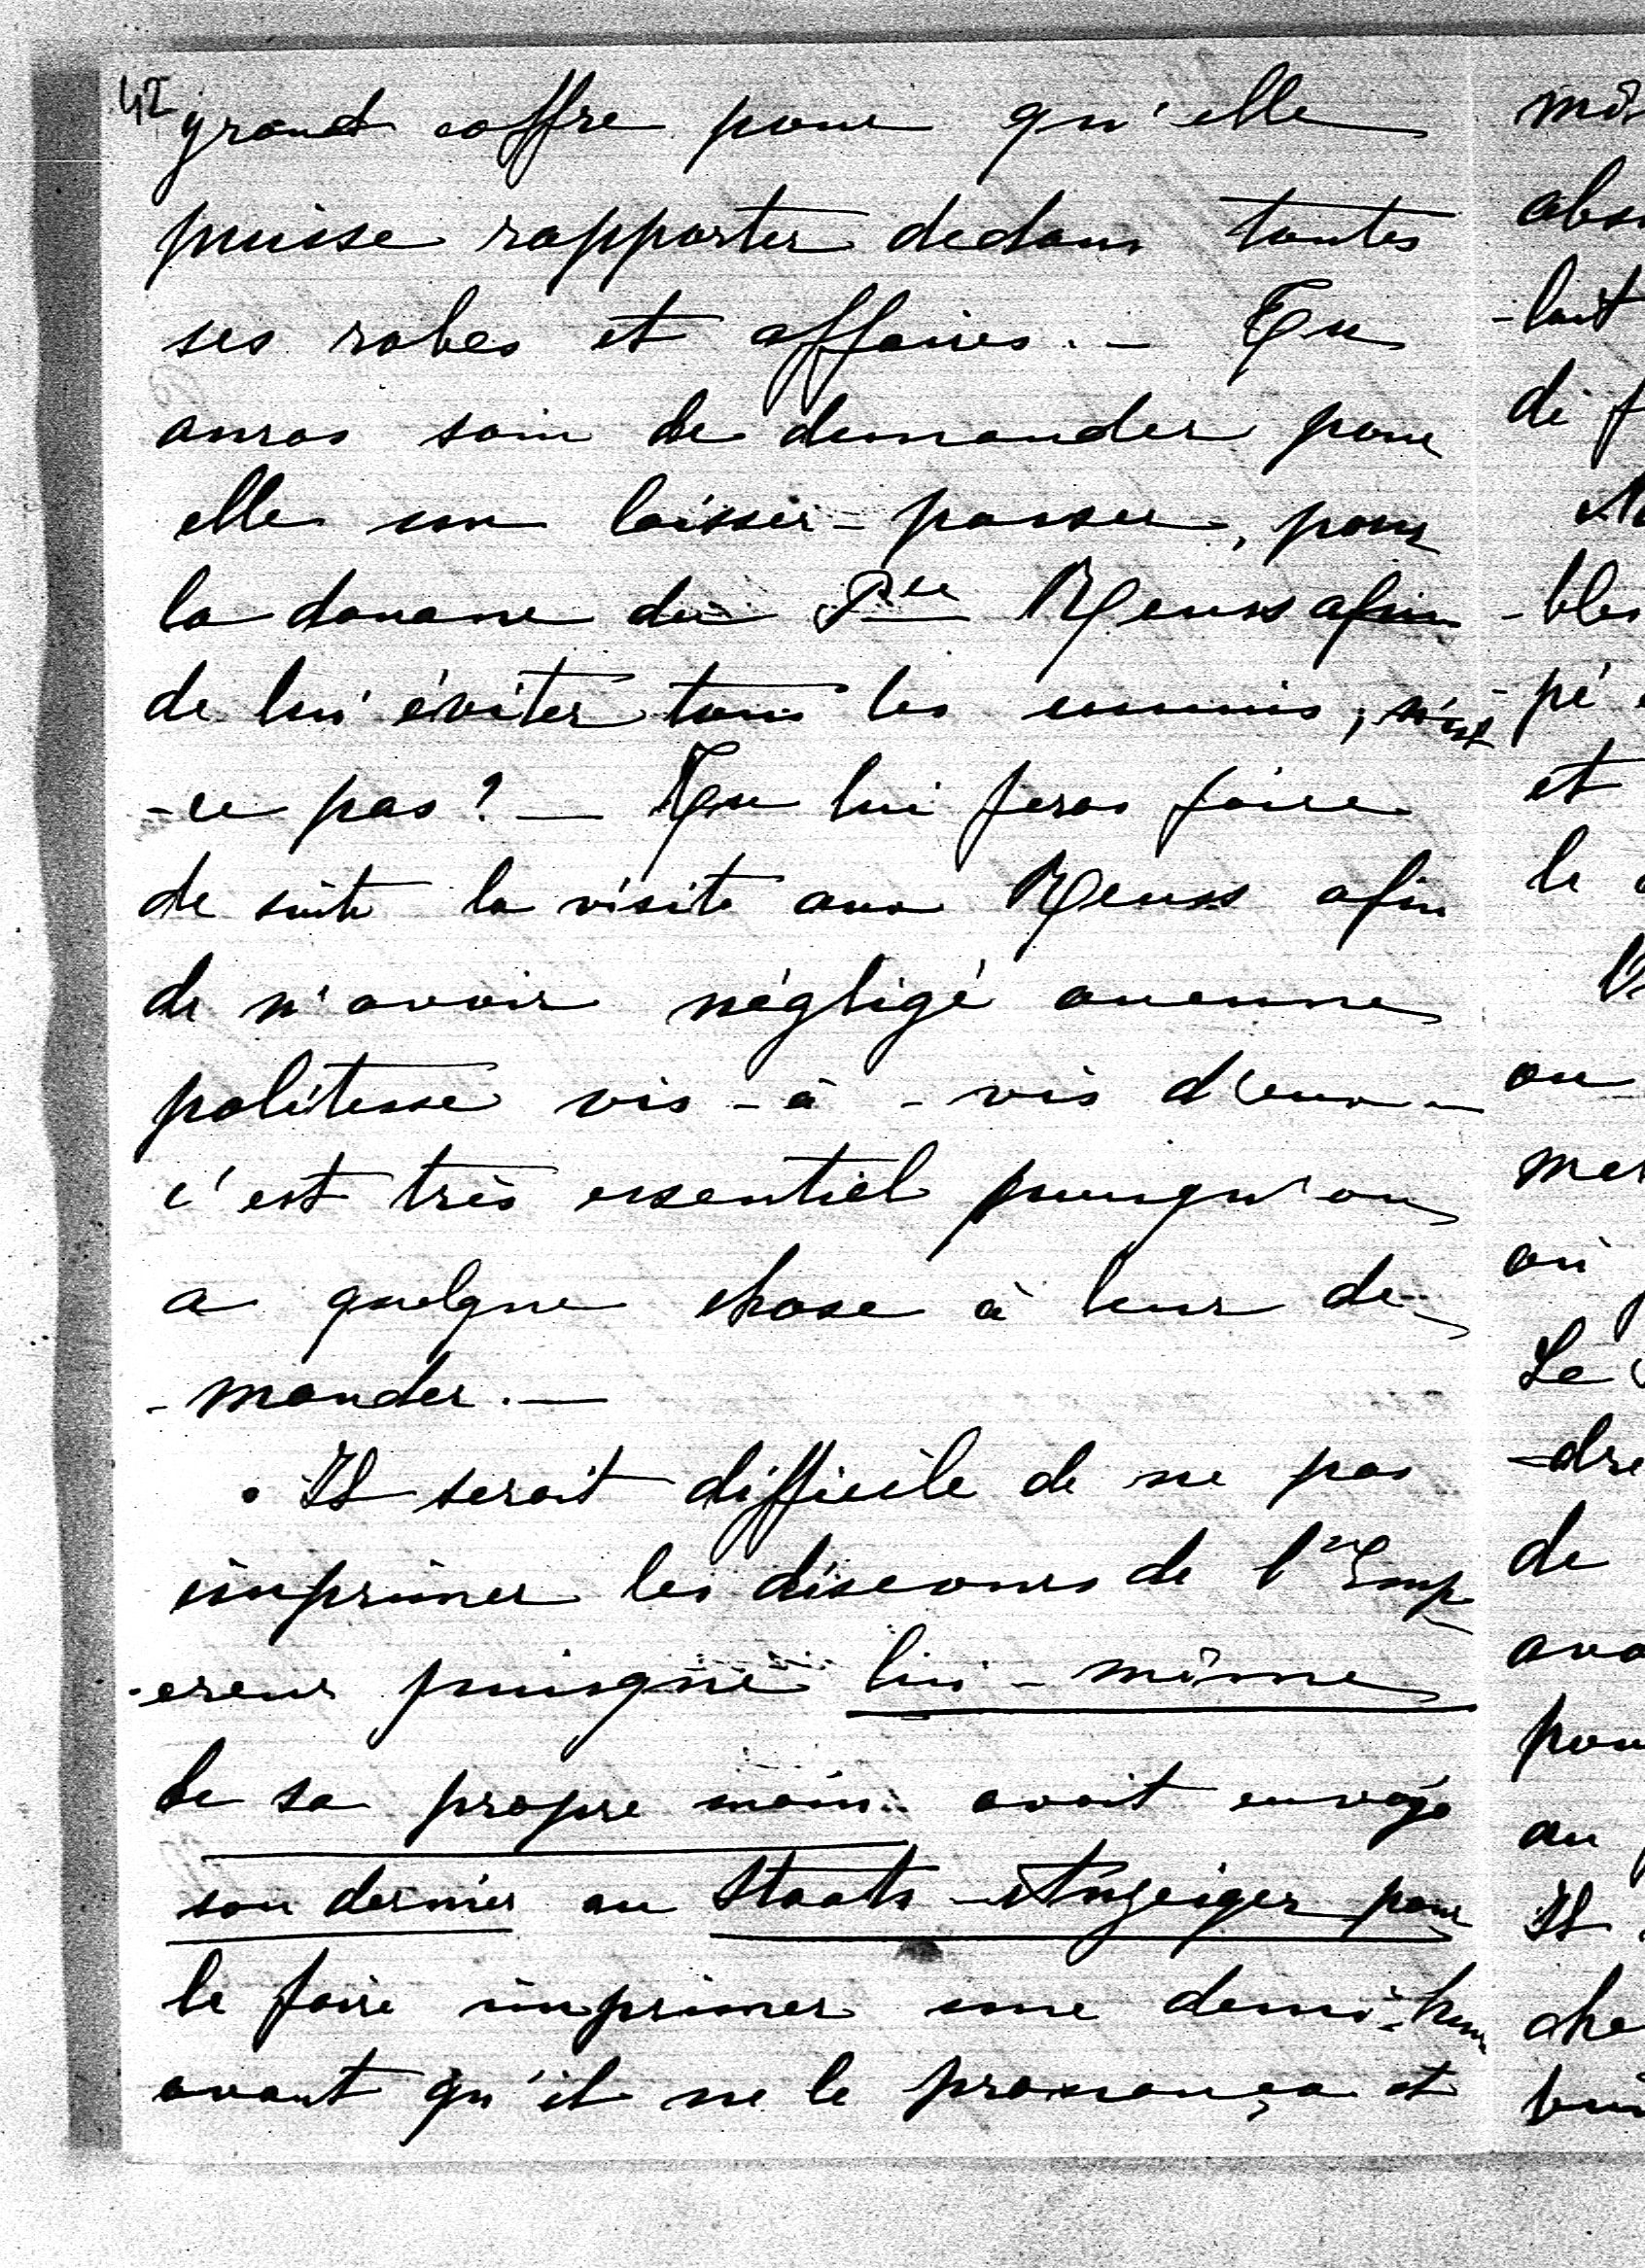 42
grand coffre pour qu'elle
puisse rapporter dedans toutes
ses robes et affaires. — Tu
auras soin de demander pour
elle un laisser-passer, pour
la douane du Pce Reuss afin
de lui éviter tous les ennuis, n'est
-ce pas? — Tu lui feras faire
de suite la visite aux Reuss afin
de n'avoir négligé aucune
politesse vis-à-vis d'eux —
c'est très essentiel puisqu'on
a quelque chose à leur de-
-mander. —
Il serait difficile de ne pas
imprimer les discours de l'Emp
-ereur puisque lui-même
de sa propre main avait envoyé
son dernier au Staats-Anzeiger pour
le faire imprimer une demi-heure
avant qu'il ne le prononça et